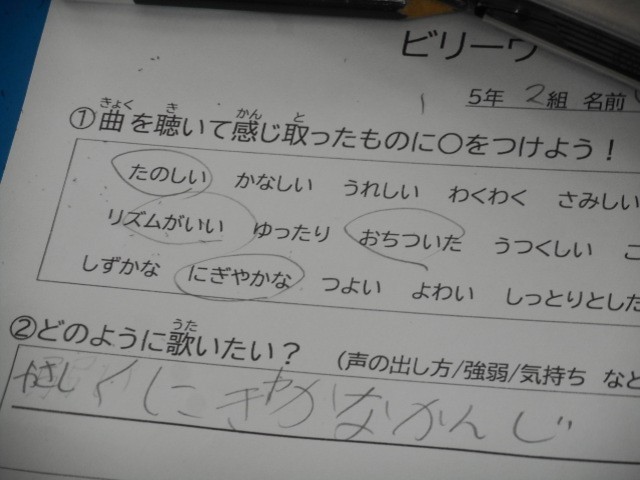 ビリーヴ
5年 2組 名前
①曲を聴いて感じ取ったものに〇をつけよう！
たのしい かなしい うれしい わくわく さみしい
リズムがいい ゆったり おちついた うつくしい こ
しずかな にぎやかな つよい よわい しっとりとした
②どのように歌いたい？ (声の出し方/強弱/気持ち など
やさしくにぎやかなかんじ